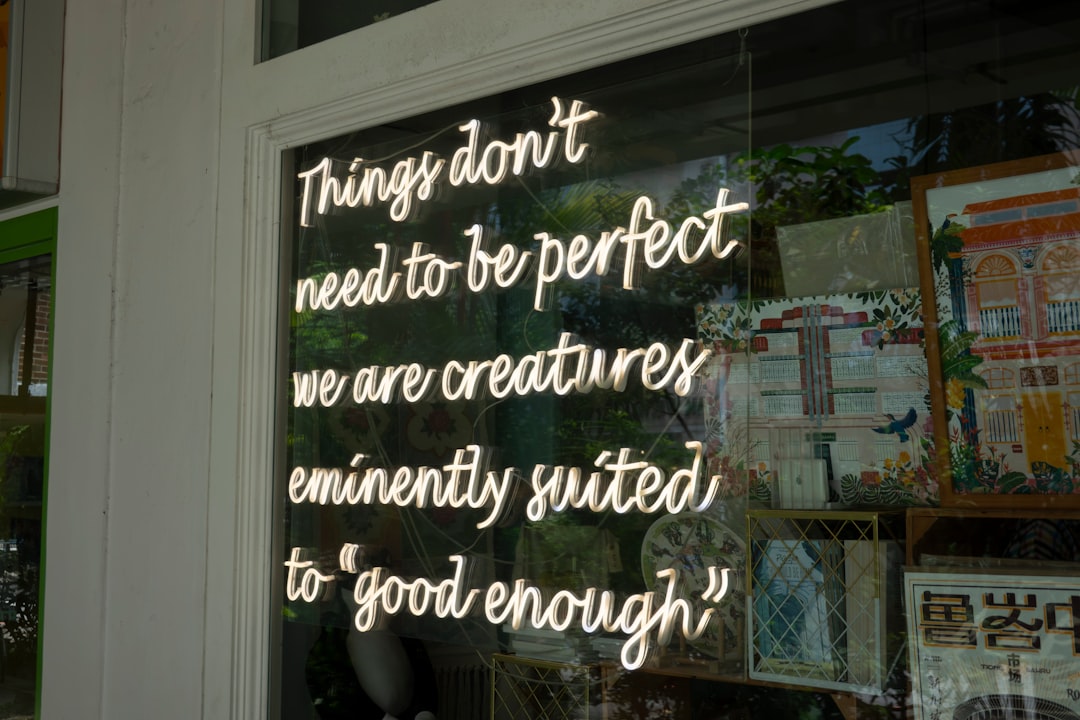 Things don't
need to be perfect
we are creatures
eminently suited
to "good enough"
市场